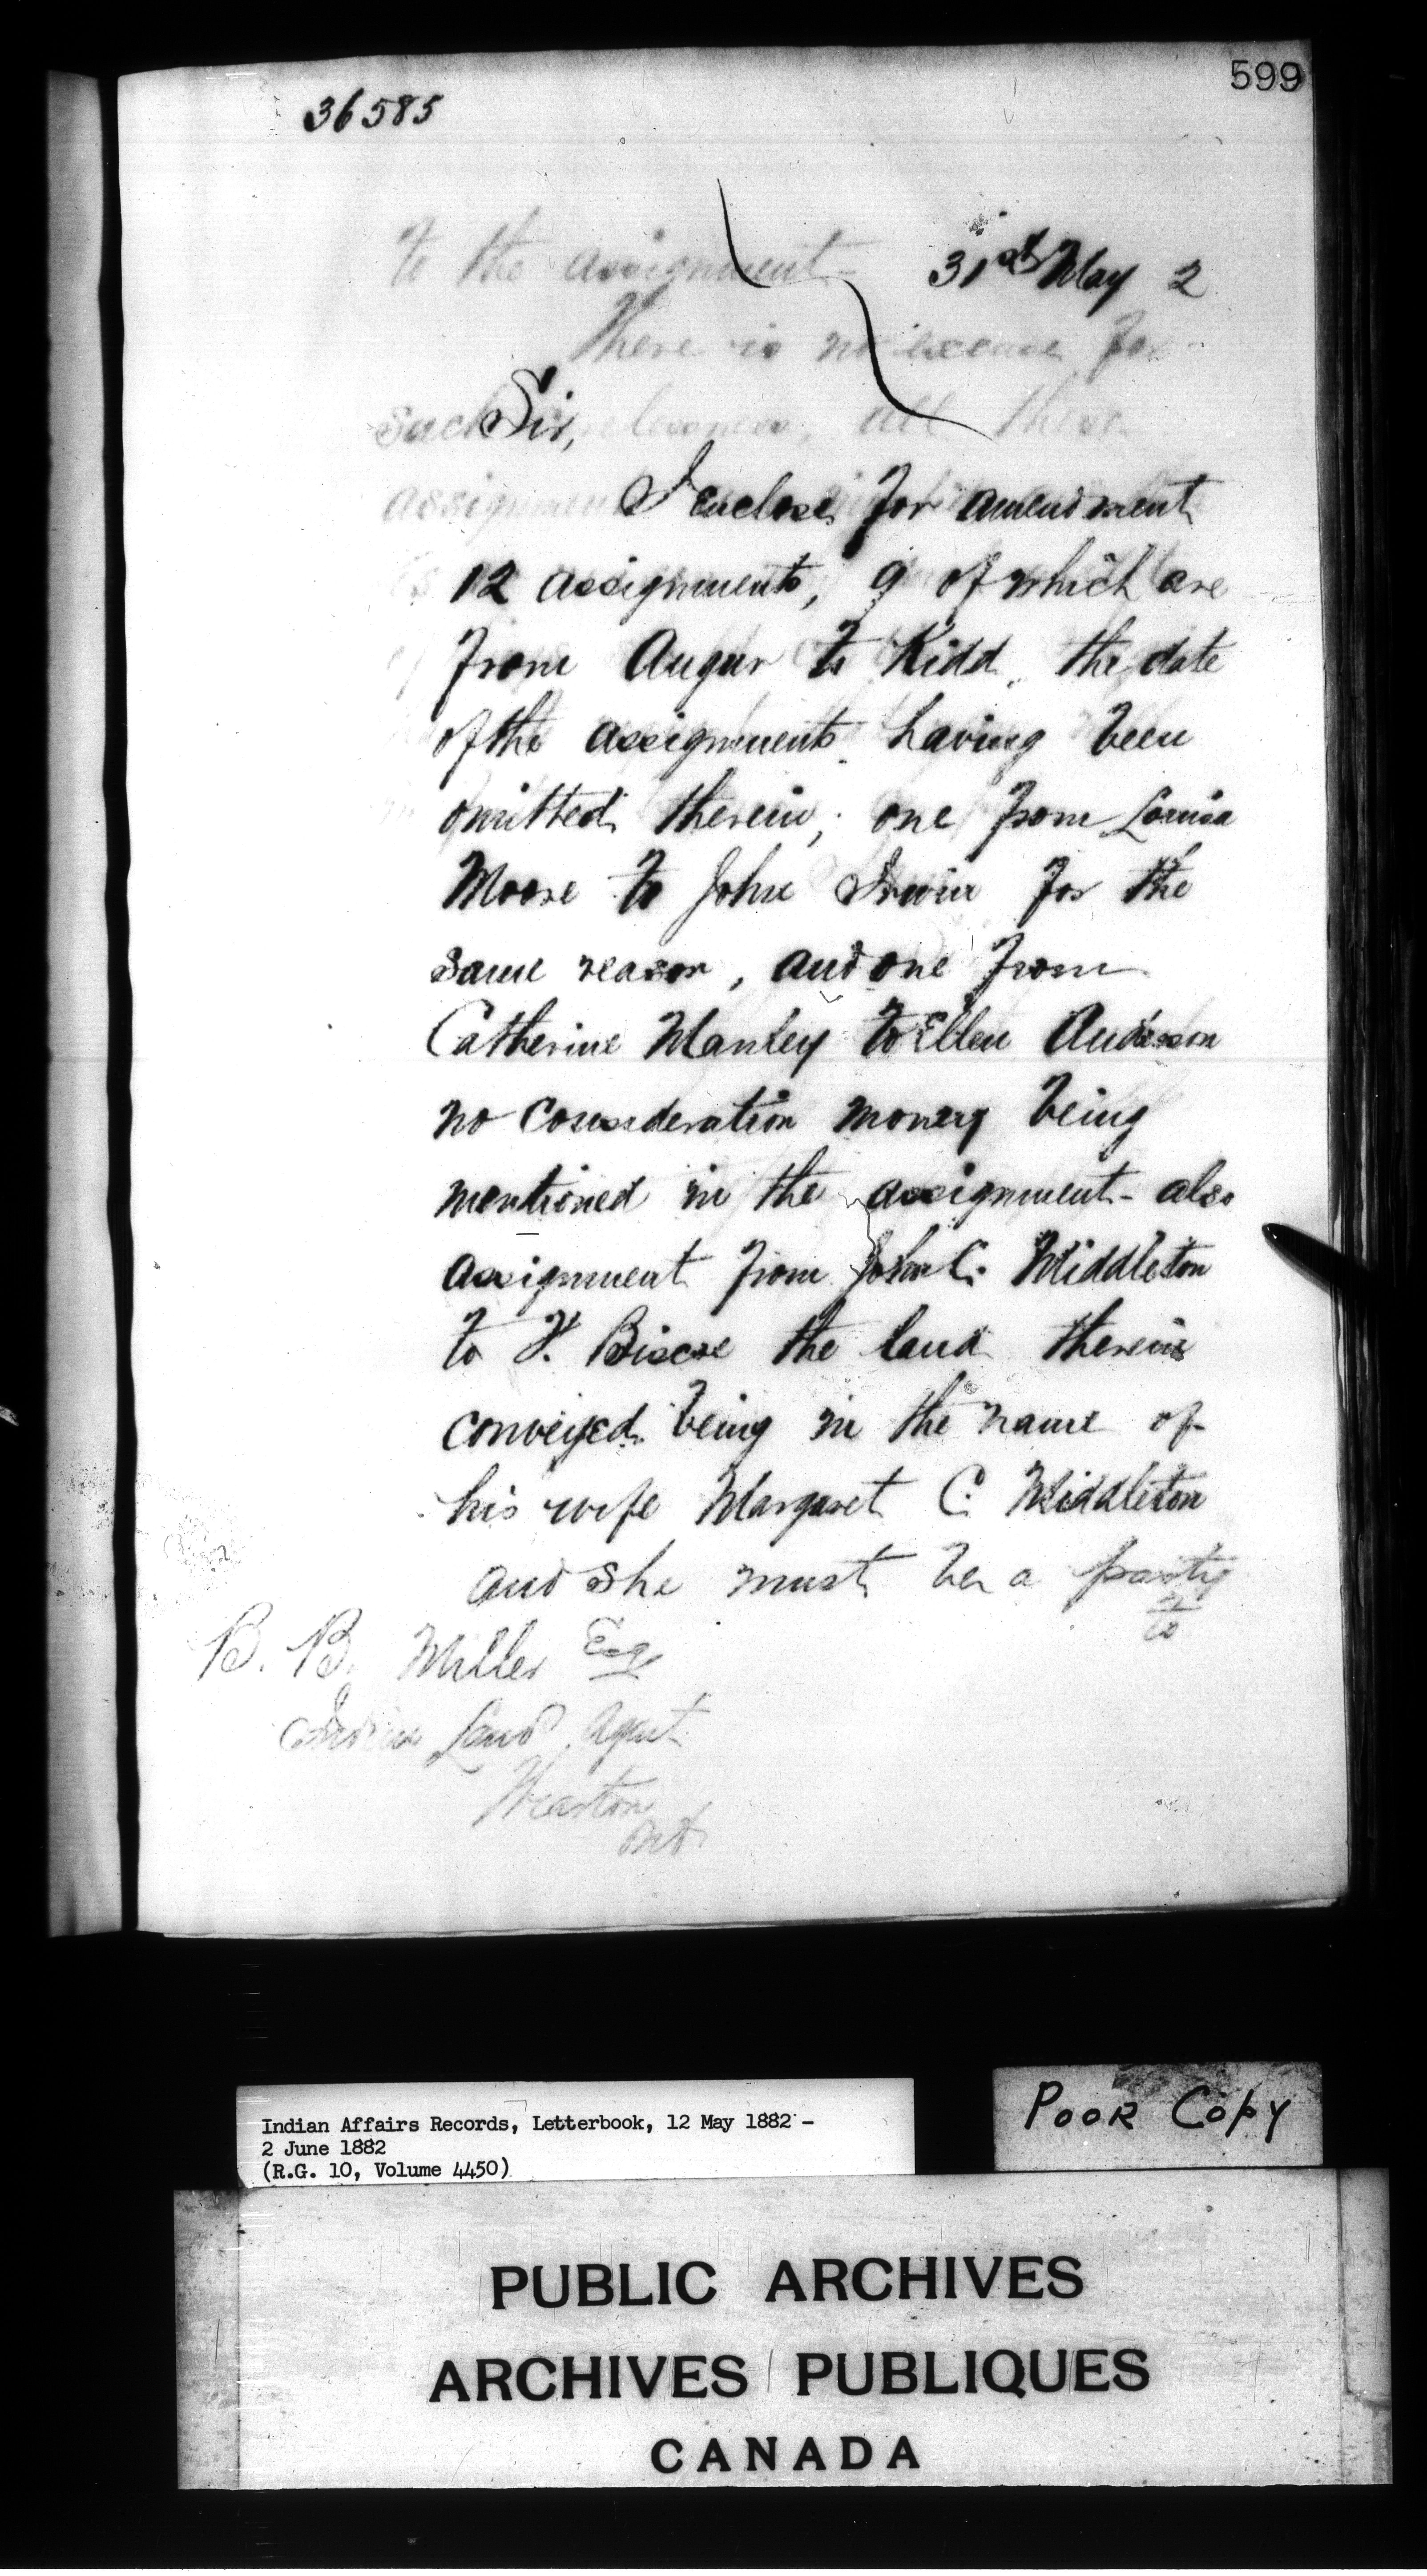 599
36585
to the assignment -
31st May 2
There is no excuse for
such
all these
Sir,
assignment
I enclose for amendment
12 assignments, 9 of which are
from Augur to Kidd, the date
of the assignments having been
omitted therein; one from Louisa
Moore to John Irwin for the
same reason, and one from
Catherine Manley to Ellen Anderson
no consideration money being
mentioned in the assignment - also
assignment from John C. Middleton
to F. Biscoe the land therein
conveyed being in the name of
his wife Margaret C. Middleton
and she must be a party
to
B. B. Miller Esq
Indian Land Agent
Wiarton
Ont
Indian Affairs Records, Letterbook, 12 May 1882 -
2 June 1882
(R.G. 10, Volume 4450)
POOR COPY
PUBLIC ARCHIVES
ARCHIVES PUBLIQUES
CANADA